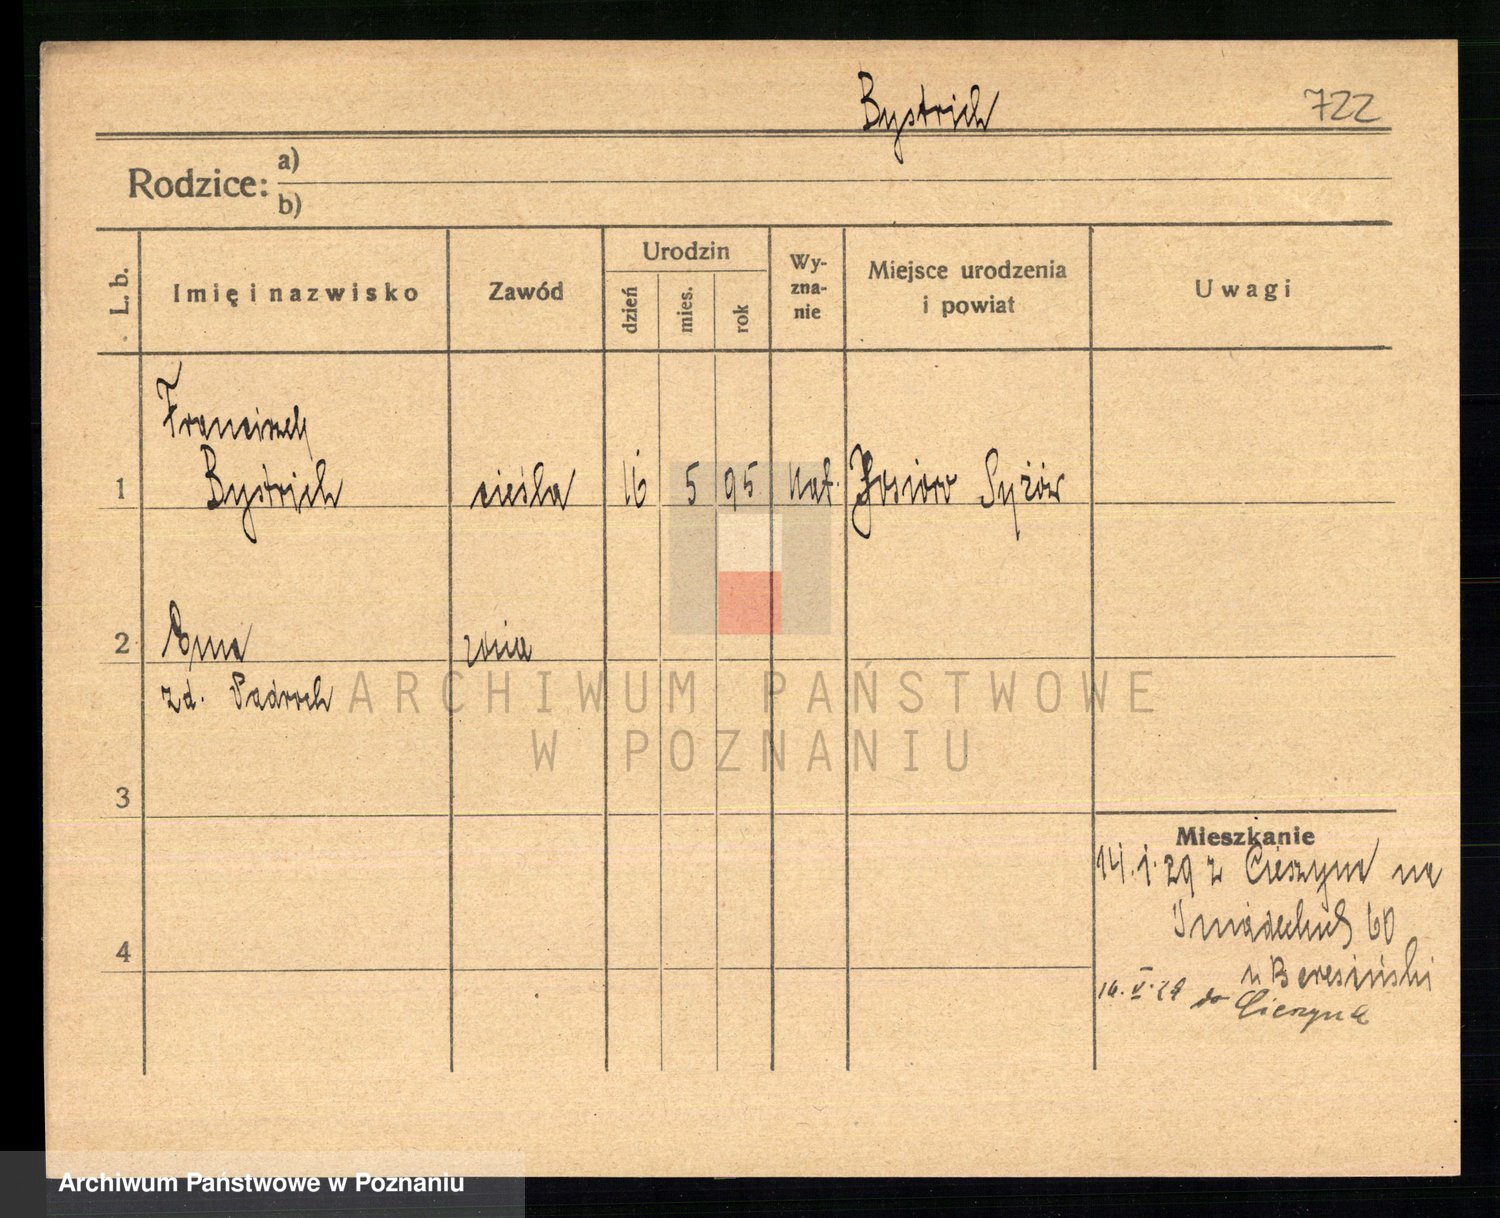 Bystrich 722
Rodzice: a)
b)
L. b.
Imię i nazwisko
Zawód
Urodzin
dzień
mies.
rok
Wy-
zna-
nie
Miejsce urodzenia
i powiat
Uwagi
Franciszek
1 Bystrich cieśla 16 5 95 kat.
2 żona
zd.
3
4
Mieszkanie
14.1.29 z Cieszyna na
60
u
16.V.29 do Cieszyna
ARCHIWUM PAŃSTWOWE
W POZNANIU
Archiwum Państwowe w Poznaniu